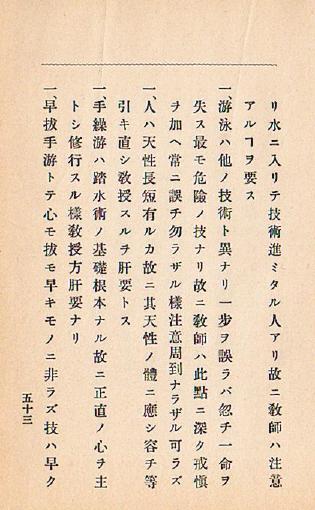 リ水ニ入リテ技術進ミタル人アリ故ニ敎師ハ注意
アルヿヲ要ス
一、游泳ハ他ノ技術ト異ナリ一步ヲ誤ラバ忽チ一命ヲ
失ス最モ危險ノ技ナリ故ニ敎師ハ此點ニ深ク戒愼
ヲ加ヘ常ニ誤チ勿ラザル樣注意周到ナラザル可ラズ
一、人ハ天性長短有ルカ故ニ其天性ノ體ニ應シ容チ等
引キ直シ敎授スルヲ肝要トス
一、手繰游ハ踏水術ノ基礎根本ナル故ニ正直ノ心ヲ主
トシ修行スル樣敎授方肝要ナリ
一、早拔手游トテ心モ拔モ早キモノニ非ラズ技ハ早ク
五十三